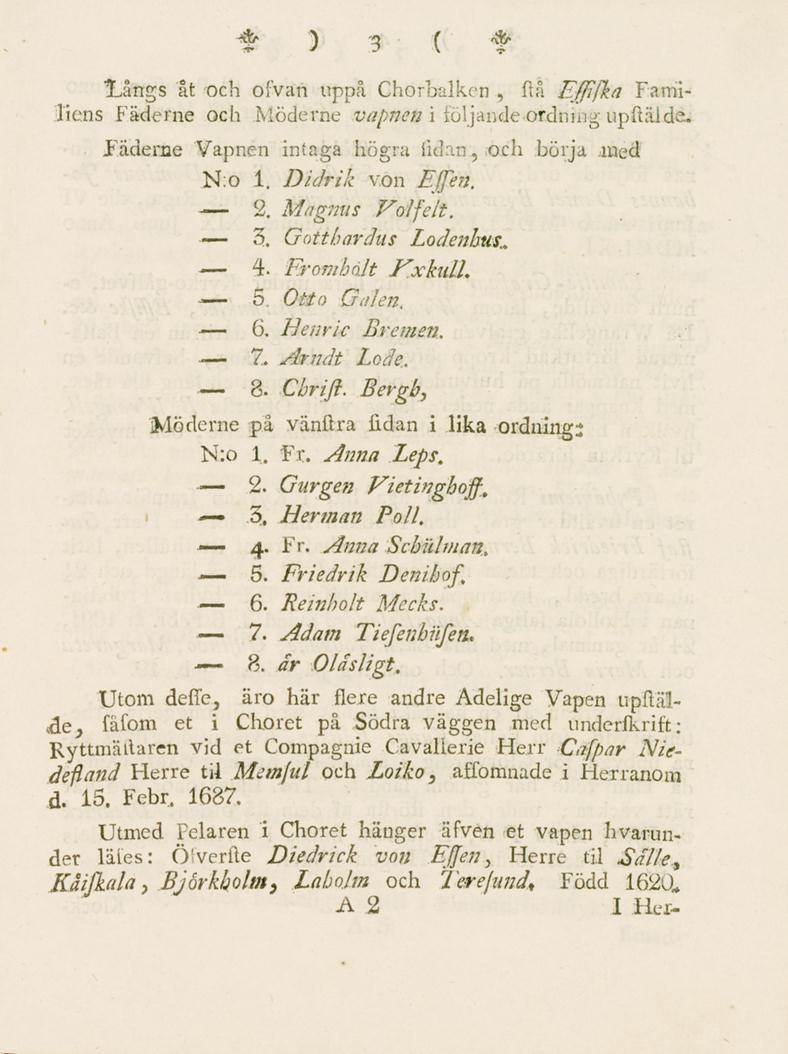 ) 3 (
Långs åt och ofvan uppå Chorbalken, ſtå Eſſiſka Fami-
liens Fäderne och Möderne vapnen i följande ordning upſtälde.
Fäderne Vapnen intaga högra ſidan, och börja med
N:o 1. Didrik von Eſſen.
— 2. Magnus Volfelt.
— 3. Gotthardus Lodenhus.
— 4. Fromhålt Yxkull.
— 5. Otto Galen.
— 6. Henric Bremen.
— 7. Arndt Lode.
— 8. Chriſt. Bergh,
Möderne på vänſtra ſidan i lika ordning:
N:o 1. Fr. Anna Leps.
— 2. Gurgen Vietinghoff.
— 3. Herman Poll.
— 4. Fr. Anna Schülman.
— 5. Friedrik Denihof.
— 6. Reinholt Mecks.
— 7. Adam Tieſenhüſen.
— 8. år Olåsligt.
Utom deſſe, äro här flere andre Adelige Vapen upſtäl-
de, ſåſom et i Choret på Södra väggen med underſkrift:
Ryttmäſtaren vid et Compagnie Cavallerie Herr Caſpar Nie-
deſland Herre til Memſul och Loiko, afſomnade i Herranom
d. 15. Febr. 1687.
Utmed Pelaren i Choret hänger äfven et vapen hvarun-
der läſes: Öfverſte Diedrick von Eſſen, Herre til Sålle,
Kåiſkala, Bjórkholm, Laholm och Tereſund. Född 1620.
A 2 I Her-